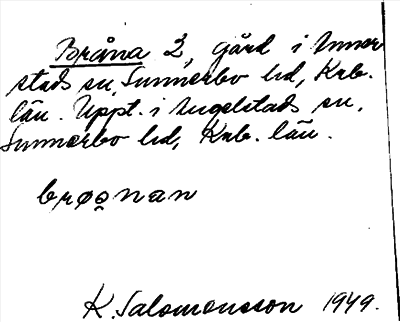 Bråna 2, gård i Unner
stads sn, Sunnerbo hd, Krb.
län. Uppt. i Angelstads sn,
Sunnerbo hd, Krb. län.
brøo̰nan
K. Salomonsson 1949.